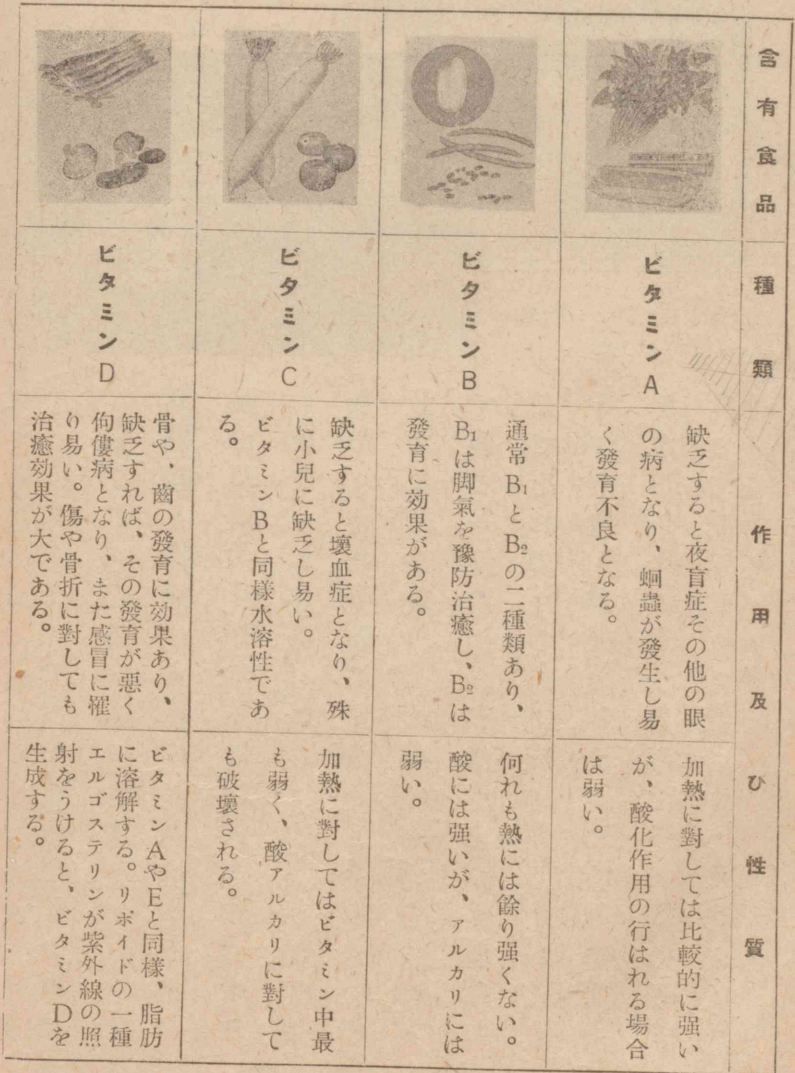 含有食品
種類
作用及ひ性質
ビタミンA
缺乏すると夜盲症その他の眼
の病となり、蛔蟲が發生し易
く發育不良となる。
加熱に對しては比較的に强い
が、酸化作用の行はれる場合
は弱い。
ビタミンB
通常B₁とB₂の二種類あり、
B₁は脚氣を豫防治癒し、B₂は
發育に効果がある。
何れも熱には餘り强くない。
酸には强いが、アルカリには
弱い。
ビタミンC
缺乏すると壞血症となり、殊
に小兒に缺乏し易い。
ビタミンBと同樣水溶性であ
る。
加熱に對してはビタミン中最
も弱く、酸アルカリに對して
も破壞される。
ビタミンD
骨や、齒の發育に効果あり、
缺乏すれば、その發育が惡く
佝僂病となり、また感冒に罹
り易い。傷や骨折に對しても
治癒効果が大である。
ビタミンAやEと同樣、脂肪
に溶解する。リポイドの一種
エルゴステリンが紫外線の照
射をうけると、ビタミンDを
生成する。